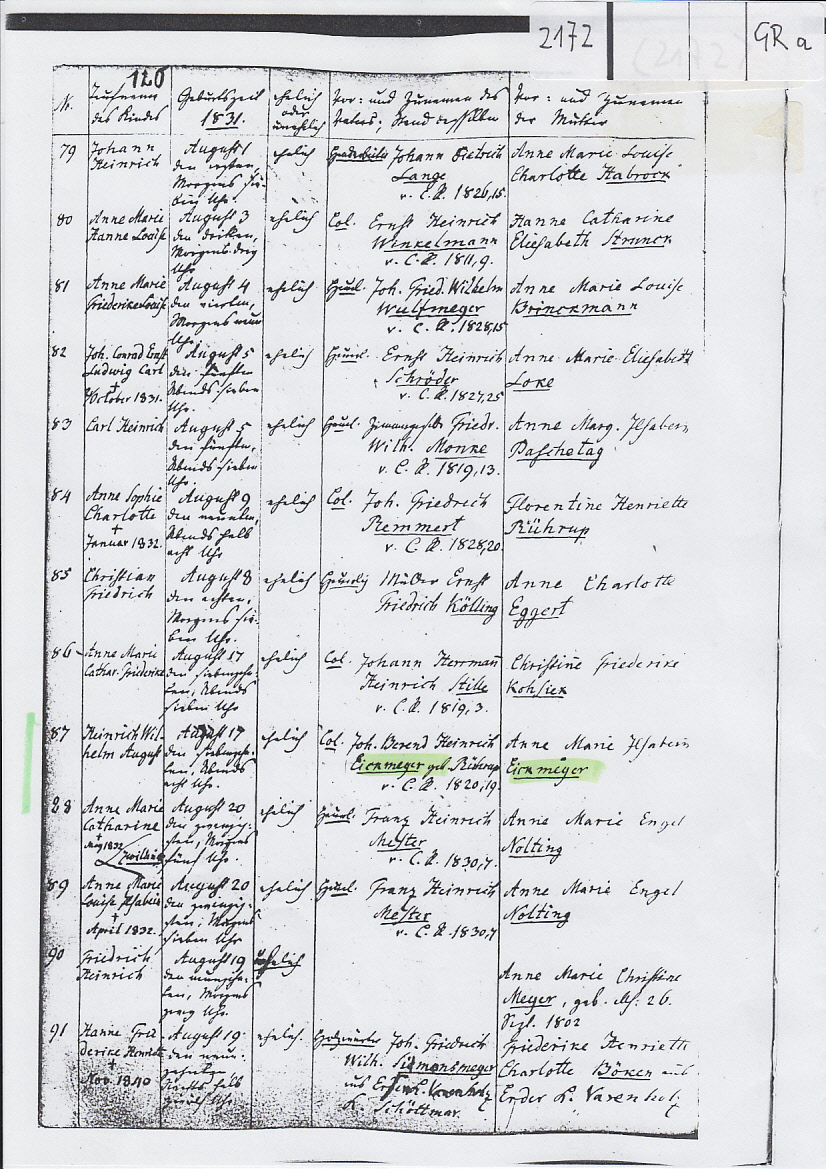 2172
GR a
120
N. Taufnamen des Kindes
Geburtszeit 1831.
ehelich oder unehelich
Vor- und Zunamen des Vaters; Stand desselben
Vor- und Zunamen der Mutter
79 Johann August 1 ehelich Johann Dietrich Anne Marie Louise
Heinrich den ersten, Lange Charlotte Habrock
Morgens sie- v. C. R. 1826,15.
ben Uhr.
80 Anne Marie August 3 ehelich Col. Ernst Heinrich Hanne Catharine
Hanne Louise den dritten, Winkelmann Eliesabeth Strunck
Morgens drey v. C. R. 1811,9.
Uhr
81 Anne Marie August 4 ehelich Joh. Fried. Wilhelm Anne Marie Louise
Friederike Louise den vierten, Wulfmeyer Brinckmann
Morgens neun v. C. R. 1828,15
Uhr.
82 Joh. Conrad Ernst August 5 ehelich Ernst Heinrich Anne Marie Eliesabeth
Ludwig Carl den fünften Schröder Loke
† Abends sieben v. C. R. 1827,25
October 1831. Uhr.
83 Carl Heinrich August 5 ehelich Friedr. Anne Marg. Ilsabein
den fünften, Wilh. Monke Paschetag
Abends sieben v. C. R. 1819,13.
Uhr.
84 Anne Sophie August 9 ehelich Col. Joh. Friedrich Florentine Henriette
Charlotte den neunten, Remmert Rührup
† Abends halb v. C. R. 1828,20.
Januar 1832. acht Uhr
85 Christian August 8 ehelich Müller Ernst Anne Charlotte
Friedrich den achten, Friedrich Kölling Eggert
Morgens sie-
ben Uhr.
86 Anne Marie August 17 ehelich Col. Johann Herrmann Christine Friederike
Cathar. Friderike den siebenzehn- Heinrich Stille Kohsiek
ten, Abends v. C. R. 1819,3.
sieben Uhr
87 Heinrich Wil- August 17 ehelich Col. Joh. Berend Heinrich Anne Marie Ilsabein
helm August den siebenzehn- Eickmeyer geb. Rührup Eickmeyer
ten, Abends v. C. R. 1820,19.
acht Uhr.
88 Anne Marie August 20 ehelich Franz Heinrich Anne Marie Engel
Catharine den zwanzig- Mester Nolting
† May 1832 sten, Morgens v. C. R. 1830,7.
Zwilling fünf Uhr.
89 Anne Marie August 20 ehelich Franz Heinrich Anne Marie Engel
Louise Ilsabein den zwanzig- Mester Nolting
† sten, Morgens v. C. R. 1830,7
April 1832. sieben Uhr
90 Friedrich August 19 unehelich Anne Marie Christine
Heinrich den neunzehn- Meyer, geb.
ten, Morgens 1802
Uhr.
91 Hanne Frie- August 19 ehelich. Joh. Friedrich Friederike Henriette
derike Henriette den neun- Wilh. Siemonsmeyer Charlotte Böken aus
† zehnten aus Erder L. Varenholz Erder L. Varenholz
Nov. 1840 Schöttmar.